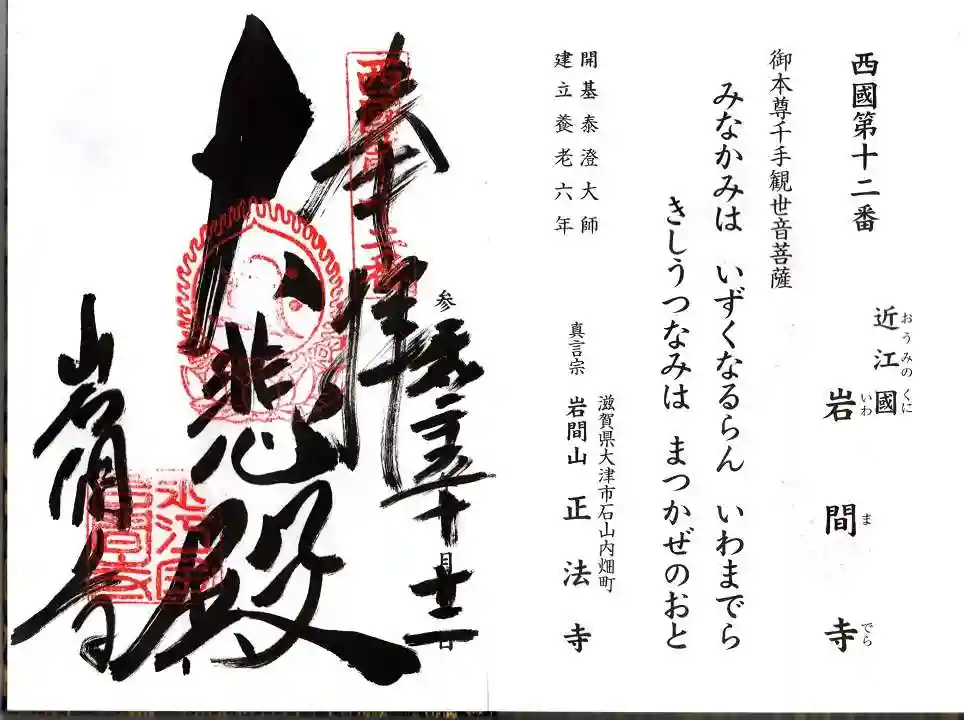 西國第十二番
近江國
おうみのくに
岩間寺
いわまでら
御本尊千手観世音菩薩
みなかみは いずくなるらん いわまでら
きしうつなみは まつかぜのおと
開基泰澄大師
建立養老六年
滋賀県大津市石山内畑町
真言宗 岩間山 正法寺
参
月
日
奉拝
大悲殿
岩間寺